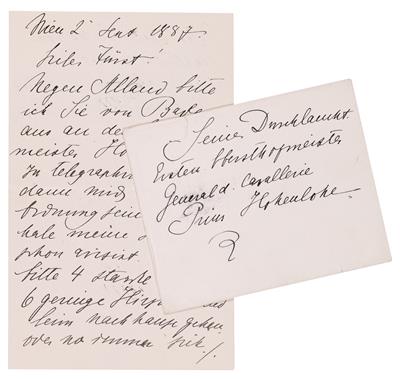 Wien 2 Sept. 1887.
lieber Fürst!
Wegen Alland bitte
ich Sie von Baden
aus an de
meister Ho
zu telegraphi
damit
Ordnung sein
habe meine
schon avisirt.
bitte 4 starke
6 geringe Hirsche
beim nachhause gehen
oder wo immer
Seiner Durchlaucht
Ersten Obersthofmeister
General d. Cavallerie
Prinz Hohenlohe.
R